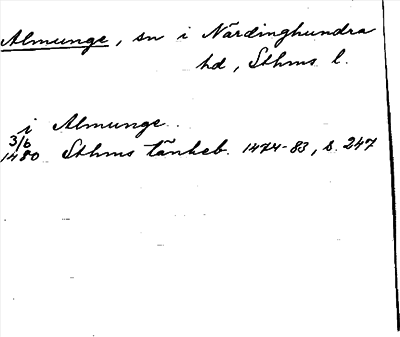 Almunge, sn i Närdinghundra
hd, Sthms l.
i Almunge.
3/6
1480 Sthms tänkeb. 1474-83, s. 247